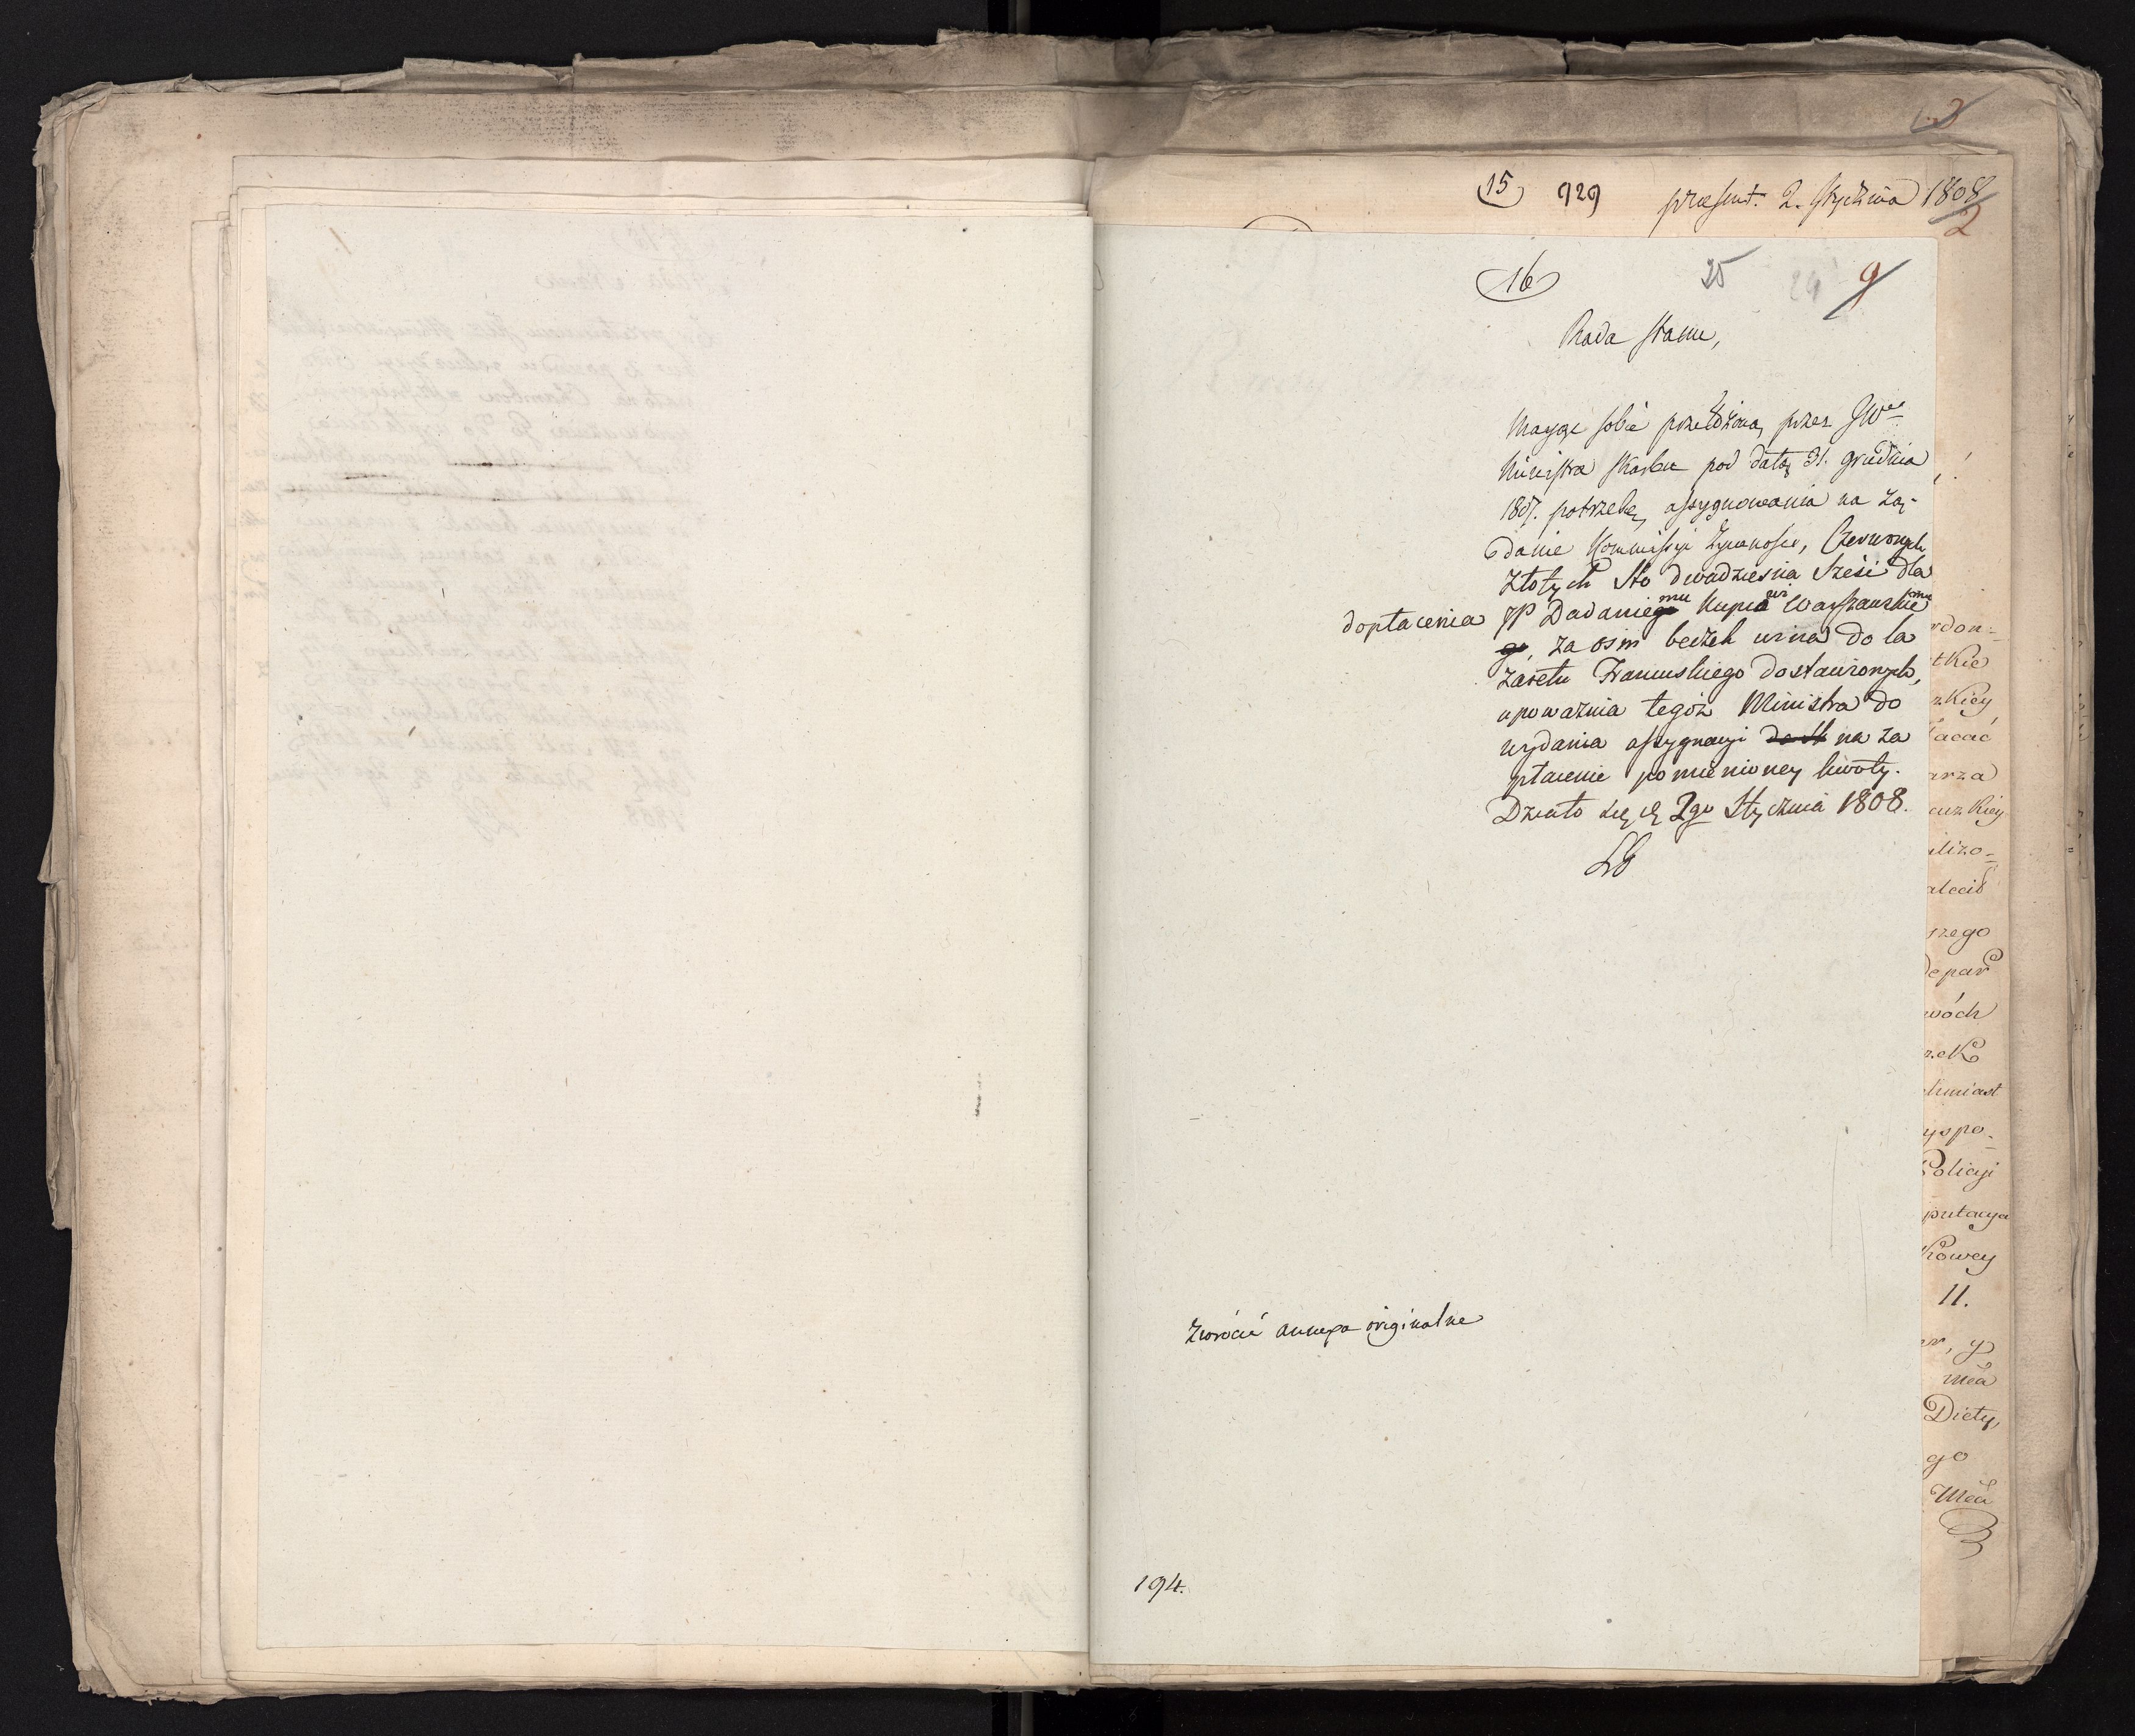 3
15 929 præsent. 2. Stycznia 1808
2
16 25 24 9
Rada Stanu,
Maiąc sobie przełożoną przez JWgo
Ministra Skarbu pod datą 31. Grudnia
1807. potrzebę assygnowania na żą-
danie Kommissyi Żywności, Czerwonych
Złotych Sto dwadzieścia Sześć dla
dopłacenia JP Dadaniego mu Kupca wi Warszawskie mu
go, za osm beczek wina do la
zaretu Francuskiego dostawionych,
upoważnia tegoż Ministra do
wydania assygnacyi do St na za
płacenie pomienioney kwoty.
Działo się d. 2go Stycznia 1808.
LG
Zwrócić annexa originalne
194.
rdon-
tkie
zkiey
łacać
arza
cuzkiey
ilizo-
alecił
szego
Depar
wóch
zek
chmiast
yspo-
Policyi
putacya
kowey
11.
er, y
Diety,
go